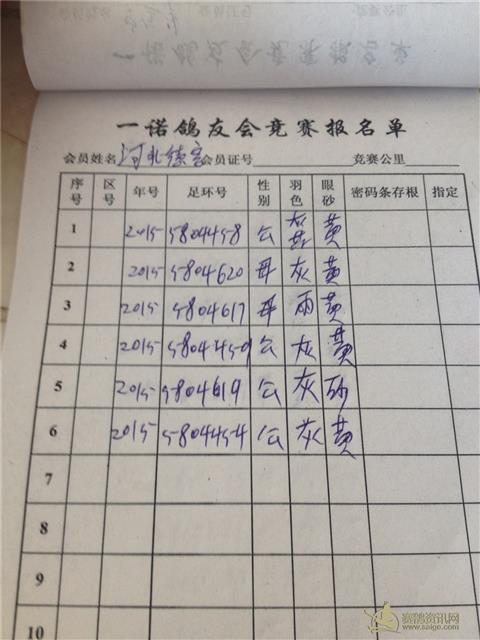 一诺鸽友会竞赛报名单
会员姓名 河北 会员证号 竞赛公里
序号 区号 年号 足环号 性别 羽色 眼砂 密码条存根 指定
1 2015 5804458 公 灰 黄
2 2015 5804620 母 灰 黄
3 2015 5804617 母 雨 黄
4 2015 5804459 公 灰 黄
5 2015 5804619 公 灰 砂
6 2015 5804454 公 灰 黄
7
8
9
10
赛鸽资讯网
www.saige.com